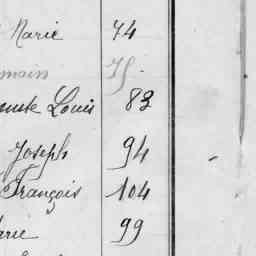 Marie 74
Louis 83
Joseph 94
François 104
arie 99